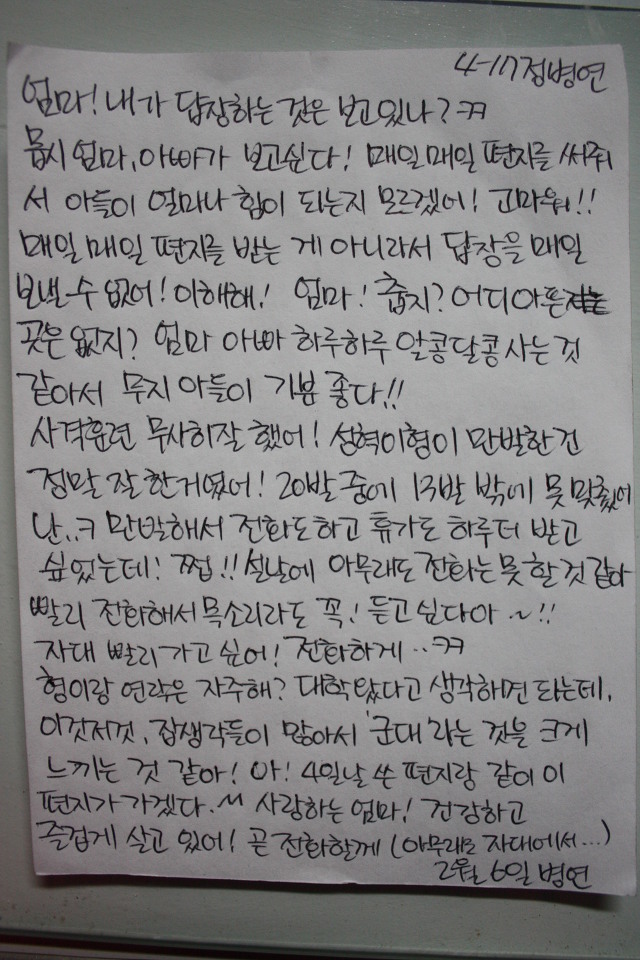 4-117 정병연
엄마! 내가 답장하는 것은 보고있나? ㅋㅋ
몹시 엄마, 아빠가 보고싶다! 매일매일 편지를 써줘
서 아들이 얼마나 힘이 되는지 모르겠어! 고마워!!
매일 매일 편지를 받는 게 아니라서 답장을 매일
보낼 수 없어! 이해해! 엄마! 춥지? 어디아픈
곳은 없지? 엄마 아빠 하루하루 알콩달콩 사는 것
같아서 무지 아들이 기분 좋다!!
사격훈련 무사히잘 했어! 성혁이형이 만발한건
정말 잘한거였어! 20발 중에 13발 밖에 못 맞췄어
난..ㅋ 만발해서 전화도하고 휴가도 하루더 받고
싶었는데! 쩝!! 설날에 아무래도 전화는 못 할 것 같아
빨리 전화해서 목소리라도 꼭! 듣고 싶다아 ~!!
자대 빨리가고 싶어! 전화하게..ㅋㅋ
형이랑 연락은 자주해? 대학왔다고 생각하면 되는데,
이것저것, 잡생각들이 많아서 '군대'라는 것을 크게
느끼는 것 같아! 아! 4일날 쓴 편지랑 같이 이
편지가 가겠다. ^^ 사랑하는 엄마! 건강하고
즐겁게 살고 있어! 곧 전화할께 (아무래도 자대에서...)
2월 6일 병연